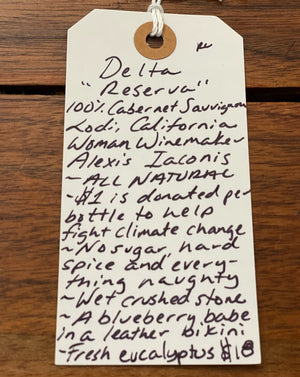 Delta
"Reserva"
100% Cabernet Sauvignon
Lodi, California
Woman Winemaker
Alexis Iaconis
~ ALL NATURAL
~ $1 is donated per
bottle to help
fight climate change
~ No sugar, hard
spice and every-
thing naughty
~ Wet crushed stone
~ A blueberry babe
in a leather bikini
~ Fresh eucalyptus $18